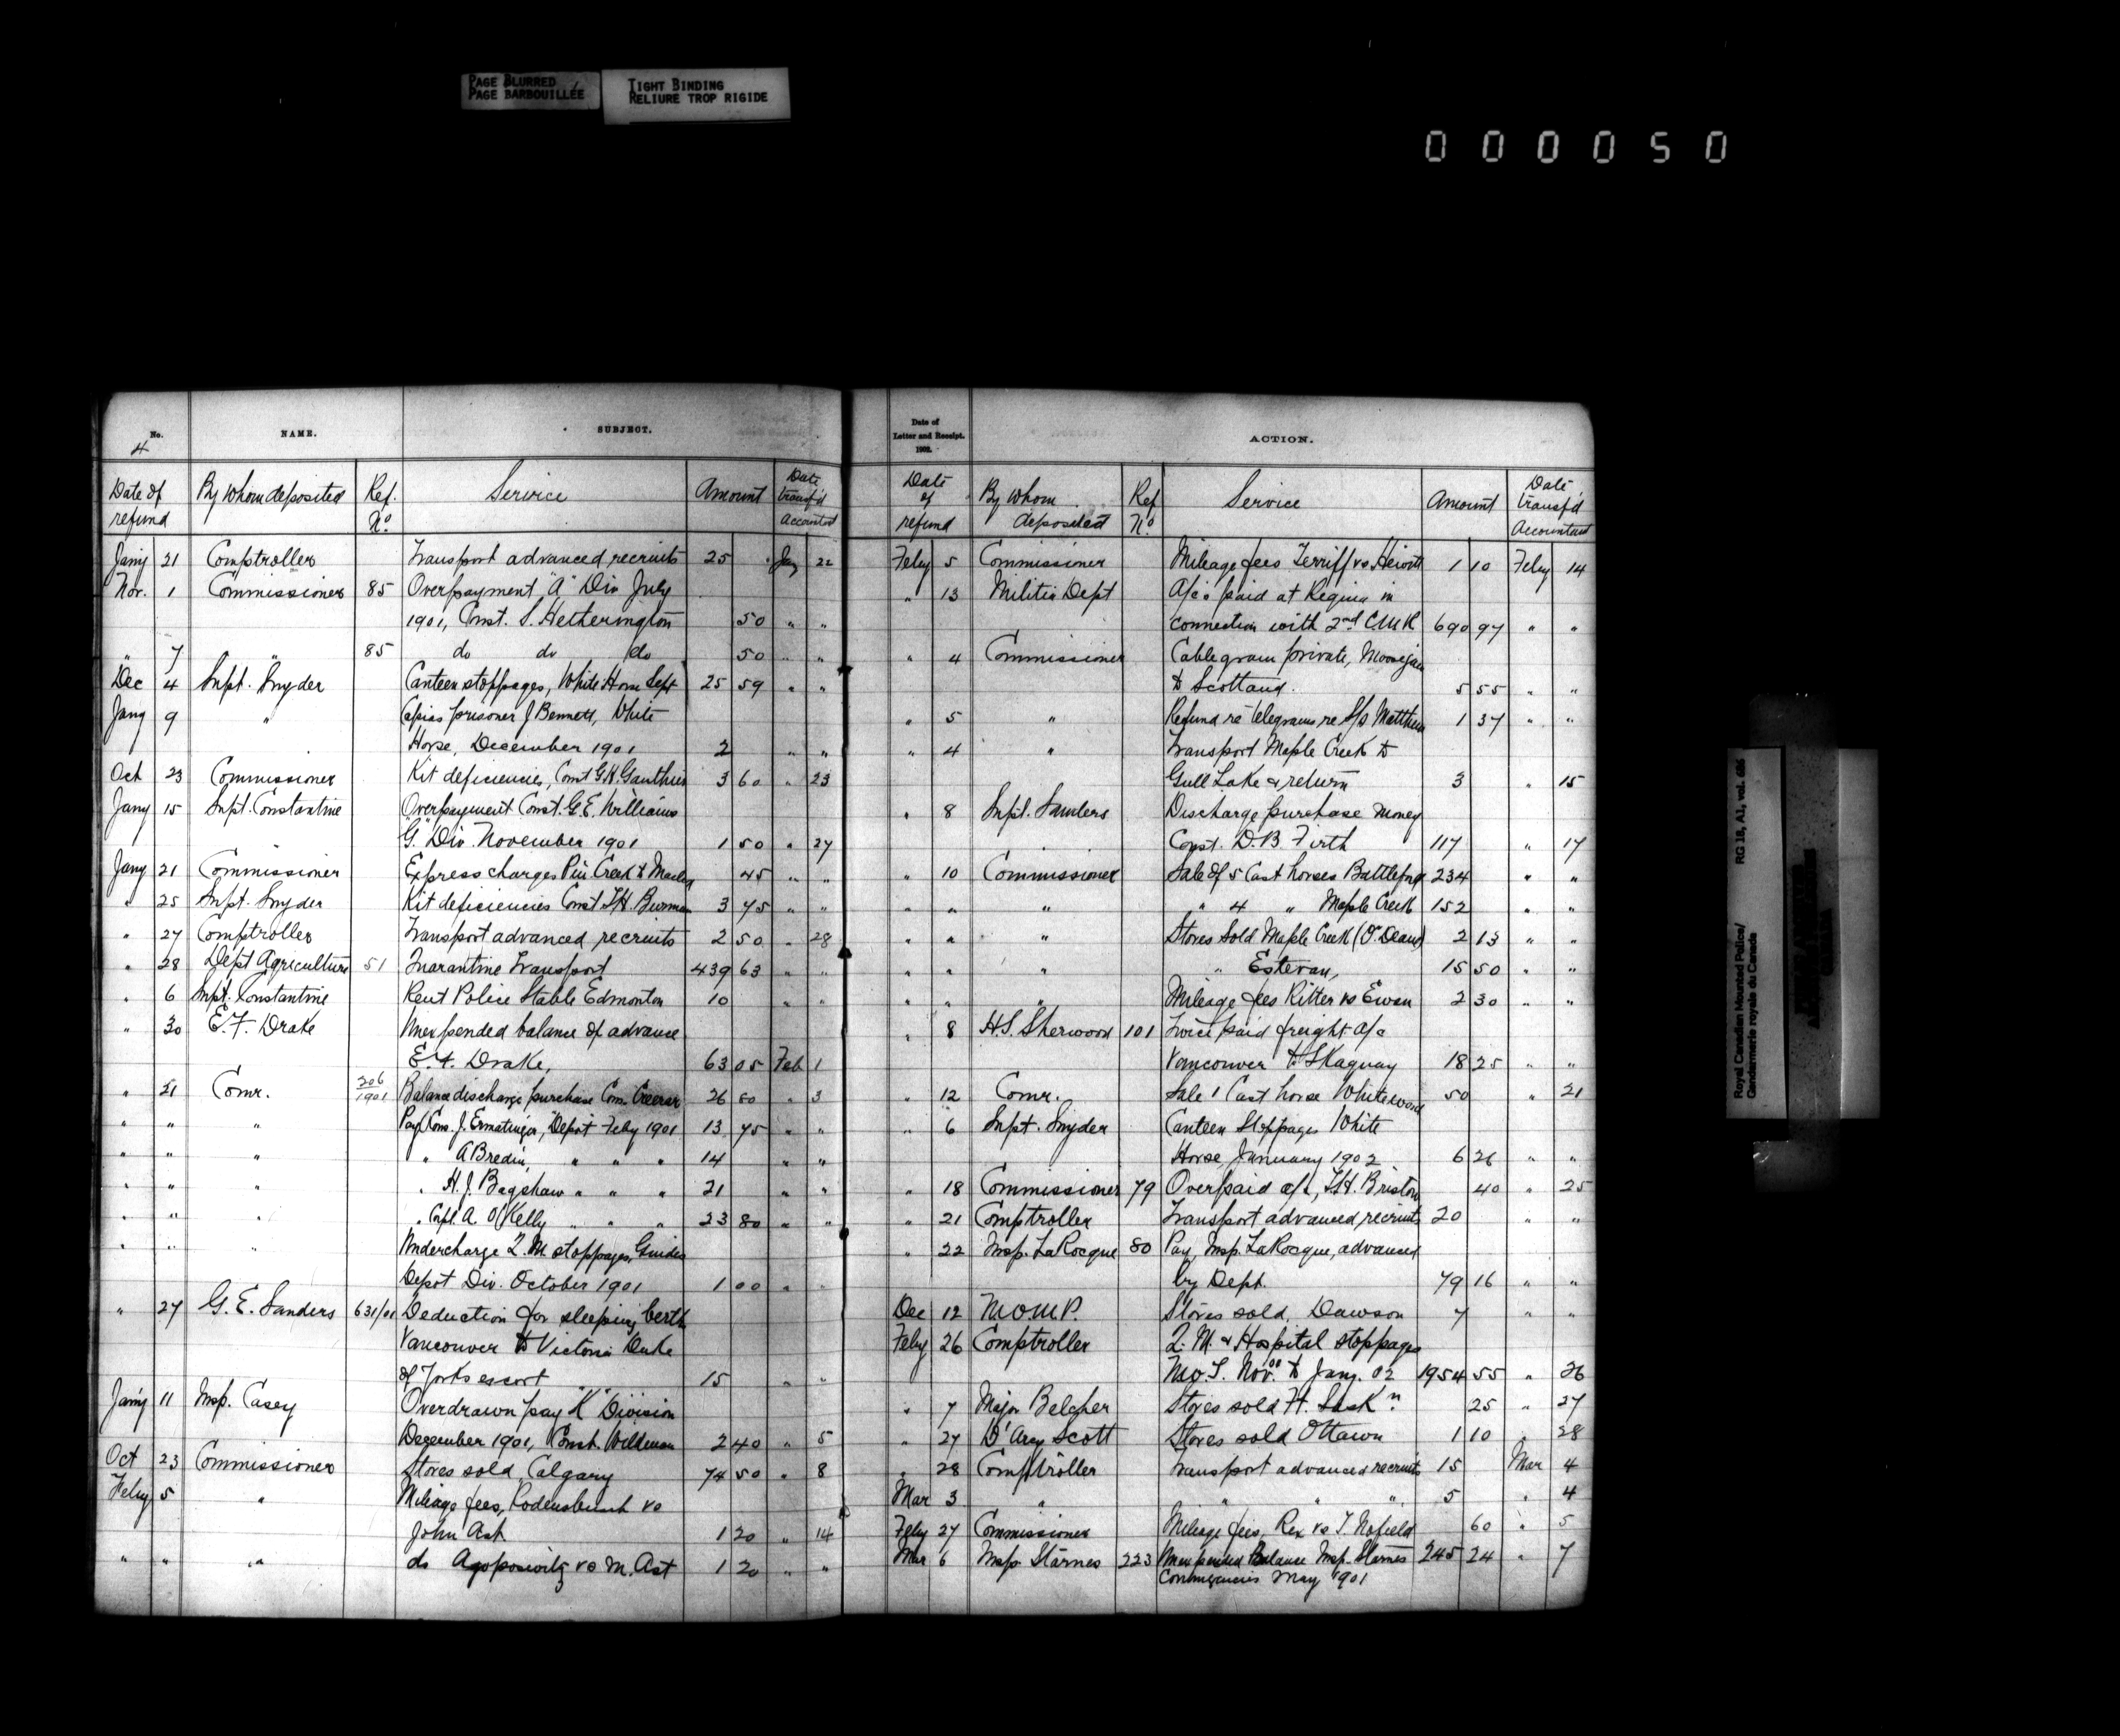 PAGE BLURRED
PAGE BARBOUILLÉE
TIGHT BINDING
RELIURE TROP RIGIDE
000050
No. NAME. SUBJECT.
4
Date of refund By whom deposited Ref. No Service Amount Date transf'd Accountant
Jany 21 Comptroller Transport advanced recruits 25 Jany 22
Nov. 1 Commissioner 85 Overpayment "A" Div July
1901, Const. S. Hetherington 50 " "
" 7 " 85 do do do 50 " "
Dec 4 Supt. Snyder Canteen stoppages, White Horse Sept 25 59 " "
Jany 9 " Capias prisoner J Bennett, White
Horse, December 1901 2 " "
Oct 23 Commissioner Kit deficiencies, Const G.H. Gauthier 3 60 " 23
Jany 15 Supt. Constantine Overpayment Const. G.E. Williams
"G" Div. November 1901 1 50 " 27
Jany 21 Commissioner Express charges Pin Creek to Macleod 45 " "
" 25 Supt. Snyder Kit deficiencies Const 3 75 " "
" 27 Comptroller Transport advanced recruits 2 50 " 28
" 28 Dept Agriculture 51 Quarantine Transport 439 63 " "
" 6 Supt. Constantine Rent Police Stable Edmonton 10 " "
" 30 E. F. Drake Unexpended balance of advance
E. F. Drake, 63 05 Feb 1
" 21 Comr. 306/1901 Balance discharge purchase Com. Creerar 26 80 " 3
" " " Pay Cons. J. Ermatinger, "Depot" Feby 1901 13 75 " "
" " " " A Bredin, " " " 14 " "
" " " " H. J. Bagshaw " " " 21 " "
" " " " Corpl. A. O'Kelly " " " 23 80 " "
" " " Undercharge Q. M. stoppages, Guides
Depot Div. October 1901 1 00 " "
" 27 G. E. Sanders 631/01 Deduction for sleeping berth
Vancouver to Victoria Duke
of Yorks escort 15 " "
Jany 11 Insp. Casey Overdrawn pay "K" Division
December 1901, Const. Wildman 2 40 " 5
Oct 23 Commissioner Stores sold, Calgary 74 50 " 8
Feby 5 " Mileage fees, Rodensbush vs
John Ast 1 20 " 14
" " " do Agoposowitz vs M. Ast 1 20 " "
Date of Letter and Receipt. 1902. ACTION.
Date of refund By whom deposited Ref No Service Amount Date transf'd Accountant
Feby 5 Commissioner Mileage fees Terriff vs Hewitt 1 10 Feby 14
" 13 Militia Dept A/cs paid at Regina in
connection with 2nd CMR 690 97 " "
" 4 Commissioner Cablegram private, Moosejaw
to Scotland. 5 55 " "
" 5 " Refund re telegrams re S/S Matthew 1 37 " "
" 4 " Transport Maple Creek to
Gull Lake & return 3 " 15
" 8 Supt. Sanders Discharge purchase money
Const. D. B. Firth 117 " 17
" 10 Commissioner Sale of 5 Cast horses Battleford 234 " "
" " " " 4 " Maple Creek 152 " "
" " " Stores Sold Maple Creek (O'Deane) 2 13 " "
" " " " Estevan, 15 50 " "
" " " Mileage fees Ritter vs Ewan 2 30 " "
" 8 H.S. Sherwood 101 Twice paid freight a/c
Vancouver to Skaguay 18 25 " "
" 12 Comr. Sale 1 Cast horse Whitewood 50 " 21
" 6 Supt. Snyder Canteen Stoppages White
Horse, January 1902 6 26 " "
" 18 Commissioner 79 Overpaid a/c, Briston 40 " 25
" 21 Comptroller Transport advanced recruits 20 " "
" 22 Insp. LaRocque 80 Pay, Insp. LaRocque, advanced
by Dept. 79 16 " "
Dec 12 NWMP. Stores sold, Dawson 7 " "
Feby 26 Comptroller Q. M. & Hospital stoppages
Nov. to Jany. 02 1954 55 " 26
" 7 Major Belcher Stores sold Ft. Saskn. 25 " 27
" 27 D'Arcy Scott Stores sold Ottawa 1 10 " 28
" 28 Comptroller Transport advanced recruits 15 Mar 4
Mar 3 " " " " 5 " 4
Feby 27 Commissioner Mileage fees, Rex vs T. Nofield 60 " 5
Mar 6 Insp. Starnes 223 Unexpended Balance Insp. Starnes 245 24 " 7
Contingencies May 1901
Royal Canadian Mounted Police/ RG 18, A1, vol. 486
Gendarmerie royale du Canada